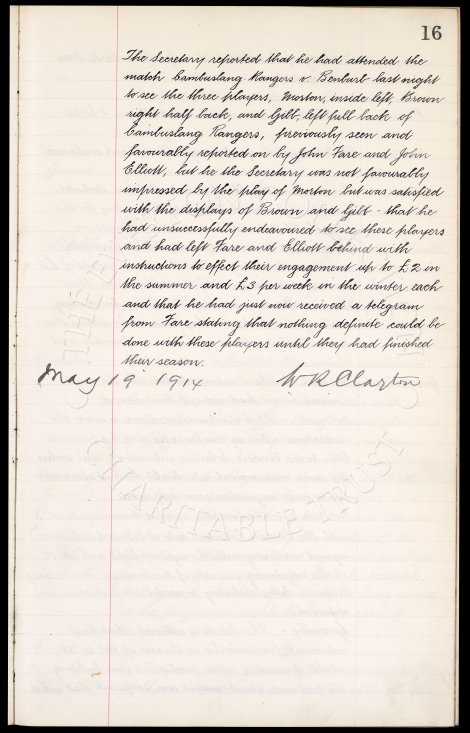 16
The Secretary reported that he had attended the
match Cambuslang Rangers v. Benburb last night
to see the three players, Morton, inside left, Brown
right half back, and Gibb, left full back of
Cambuslang Rangers, previously seen and
favourably reported on by John Fare and John
Elliott, but he the Secretary was not favourably
impressed by the play of Morton but was satisfied
with the displays of Brown and Gibb - that he
had unsuccessfully endeavoured to see these players
and had left Fare and Elliott behind with
instructions to effect their engagement up to £2 in
the summer and £3 per week in the winter each
and that he had just now received a telegram
from Fare stating that nothing definite could be
done with these players until they had finished
their season.
May 19 1914 W R Clayton
CHARITABLE TRUST